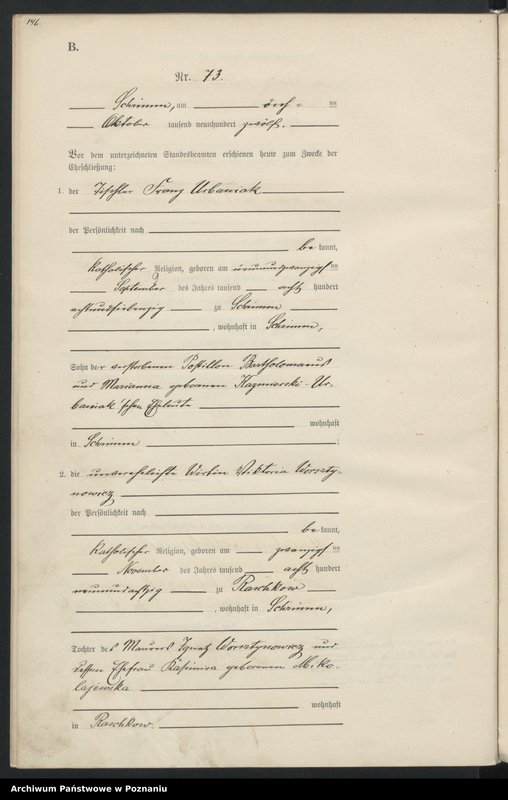 146.
B.
Nr. 73.
Schrimm, am drei= ten
Oktober tausend neunhundert zwölf.
Vor dem unterzeichneten Standesbeamten erschienen heute zum Zwecke der
Eheschließung:
1. der Tischler Franz Urbaniak
der Persönlichkeit nach
be kannt,
katholischer Religion, geboren am neunundzwanzigsten
September des Jahres tausend acht hundert
achtundsiebenzig zu Schrimm
, wohnhaft in Schrimm,
Sohn der verstorbenen Postillon Bartholomäus
und Marianna geborenen Kazmierski Ur-
baniak'schen Eheleute
wohnhaft
in Schrimm ;
2. die unverehelichte Wirtin Viktoria Worszty-
nowicz
der Persönlichkeit nach
be kannt,
katholischer Religion, geboren am zwanzigsten
November des Jahres tausend acht hundert
neunundachtzig zu Raschkow
, wohnhaft in Schrimm,
Tochter des Maurers Ignatz Worsztynowicz und
dessen Ehefrau Kasimira geborenen Miko-
lajewska
wohnhaft
in Raschkow.
Archiwum Państwowe w Poznaniu